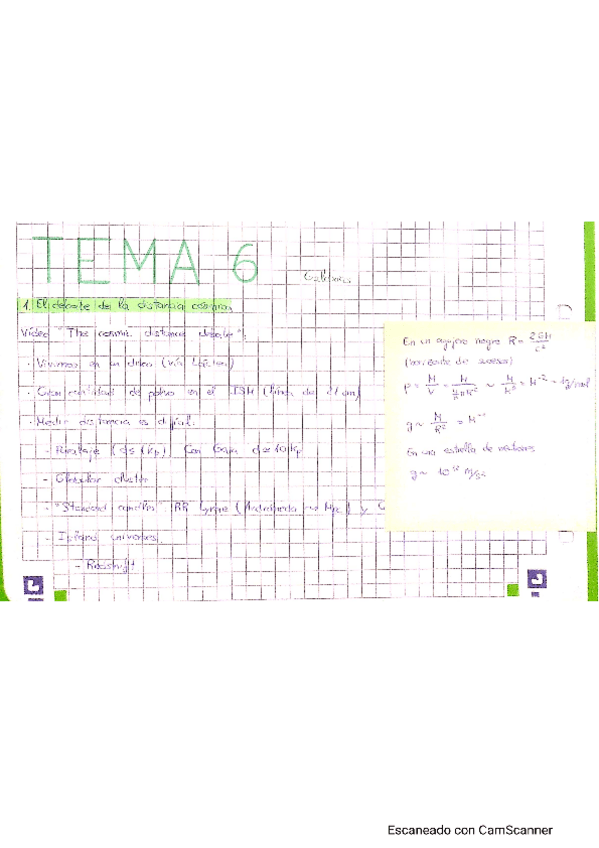 TEMA 6
Galaxias
1. El debate de la distancia cósmica
Vídeo "The cosmic distance debate":
· Vivimos en un disco (vía láctea)
· Gran cantidad de polvo en el ISM (línea de 21 cm)
· Medir distancia es difícil:
- Paralaje (d≤1kp) Con Gaia d≤10kp
- Globular cluster
- "Standard candles" RR Lyrae (Andromeda ~ Mpc) y C
- Islands universes
- Redshift
En un agujero negro R = 2GM/c²
(horizonte de sucesos)
ρ = M/V = M/(4/3 π R³) ~ M/M³ = M⁻²
g ~ M/R² = M⁻¹
En una estrella de neutrones
g ~ 10¹² m/s²
Escaneado con CamScanner